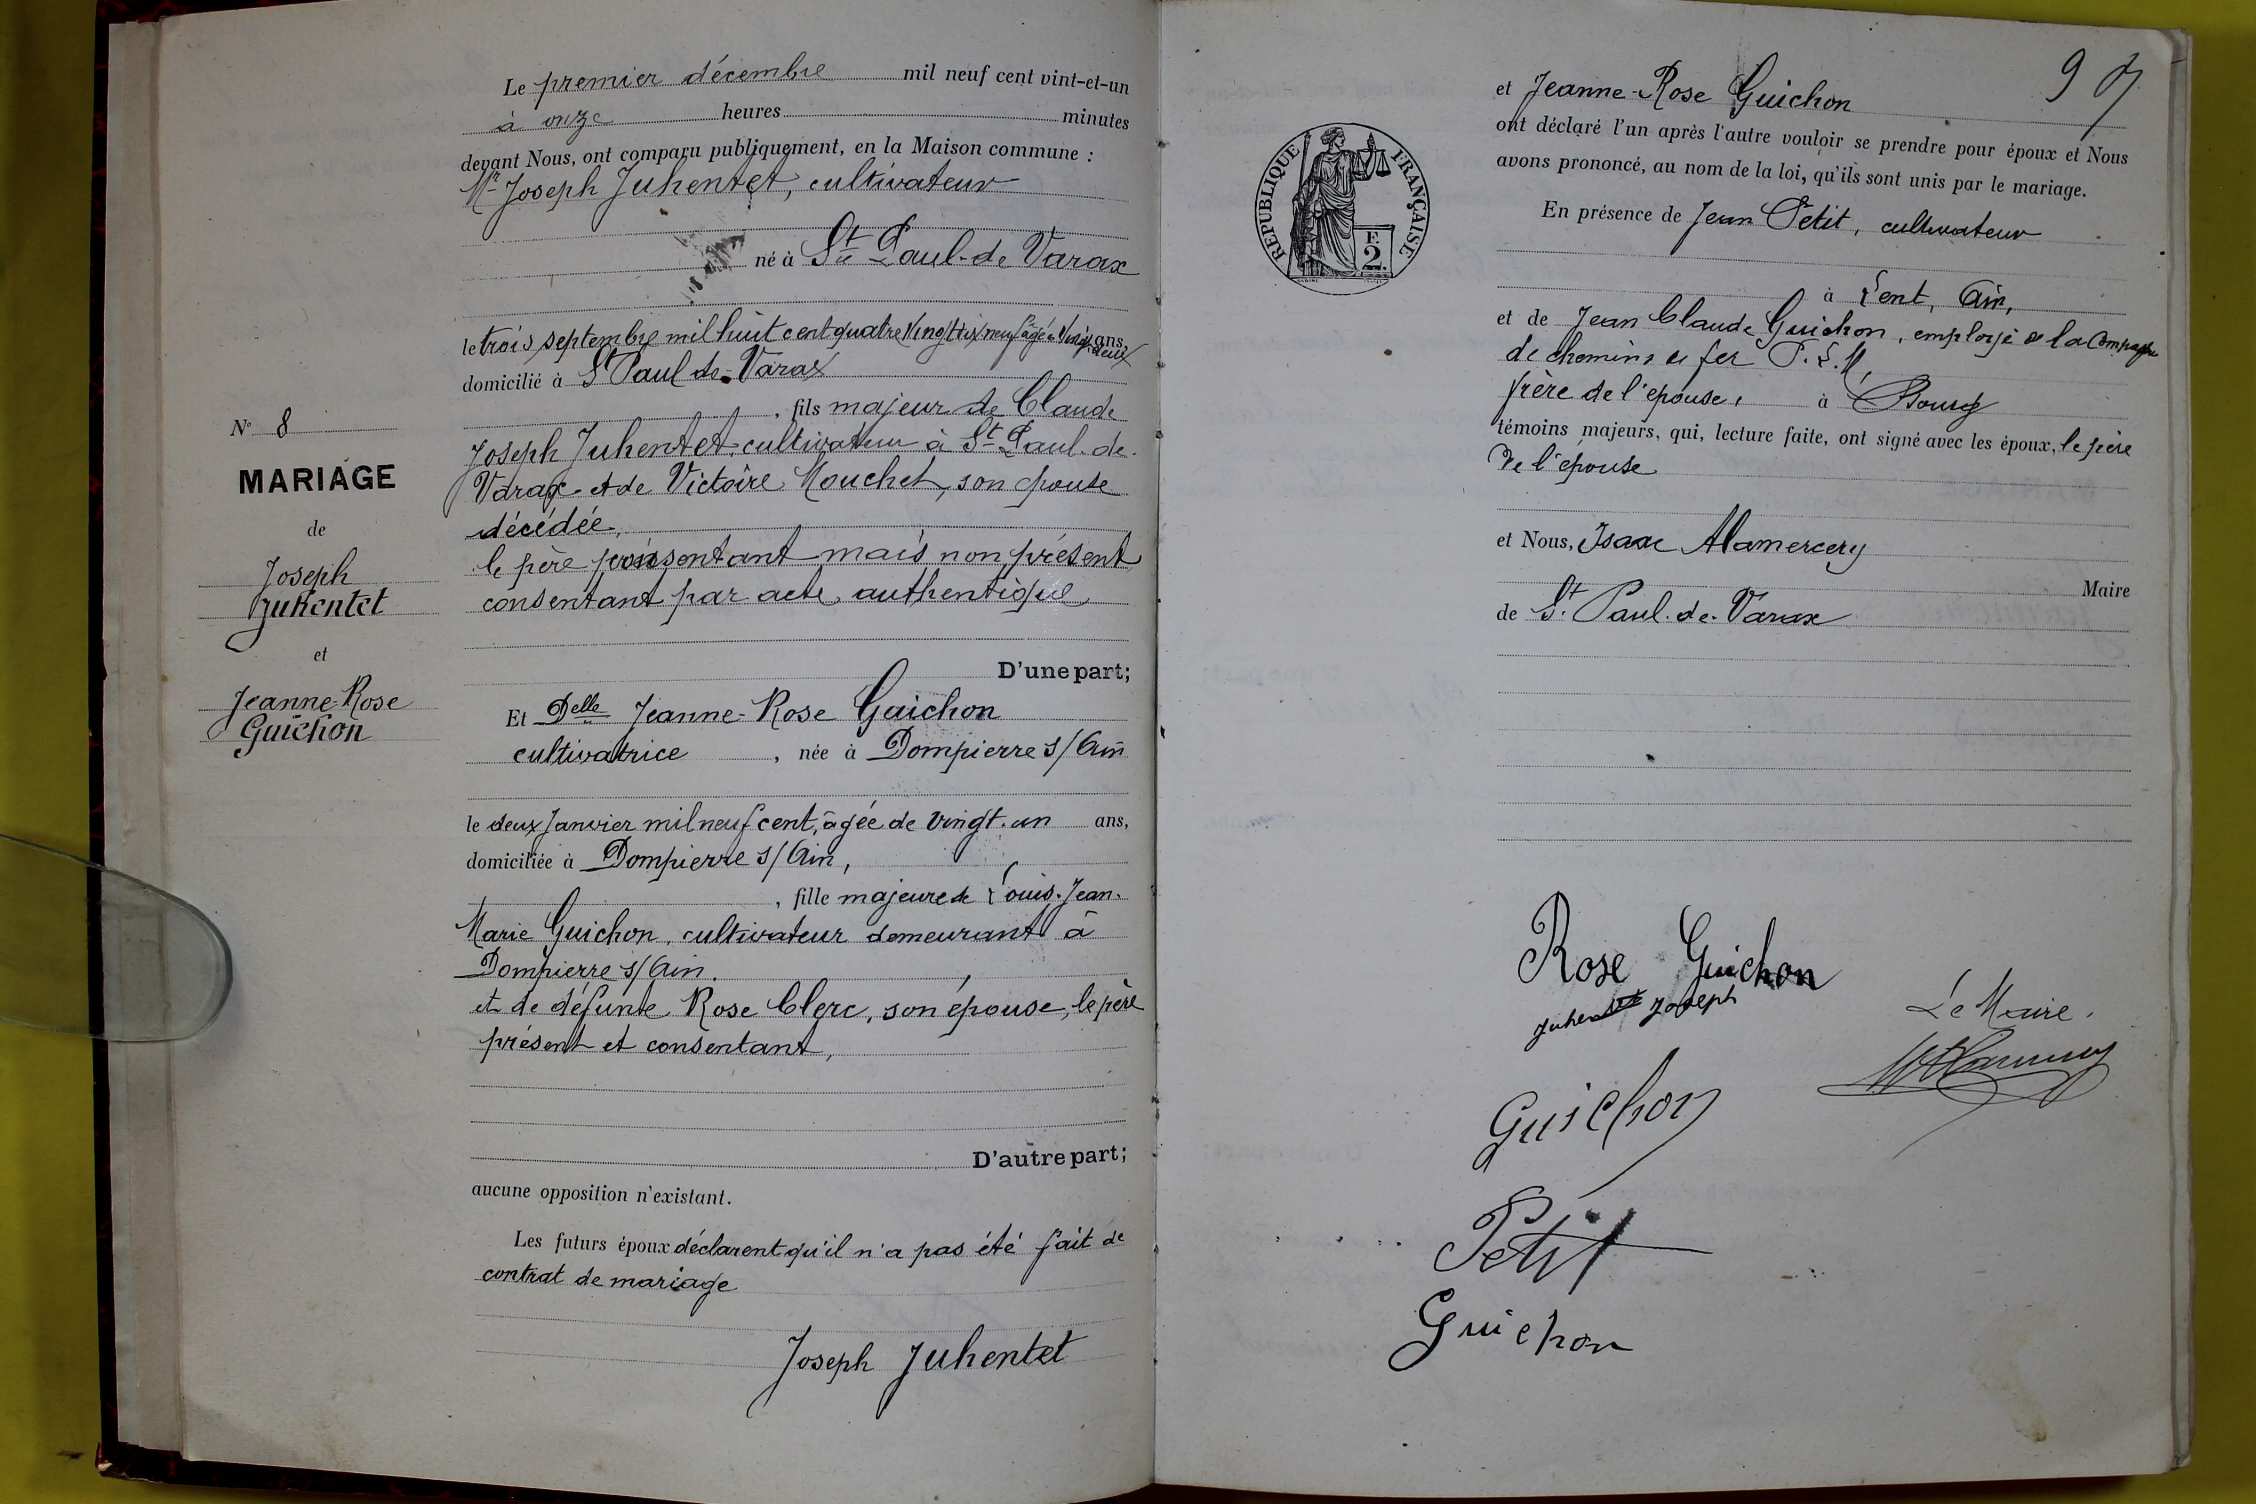 Le premier décembre mil neuf cent vint-et-un
à onze heures minutes
devant Nous, ont comparu publiquement, en la Maison commune :
Mr Joseph Juhentet, cultivateur
né à St Paul-de Varax
le trois septembre mil huit cent quatre vingt dix neuf âgé de vingt deux ans,
domicilié à St Paul de-Varax
, fils majeur de Claude
Joseph Juhentet, cultivateur à St Paul-de-
Varax et de Victoire Mouchet, son épouse
décédée,
le père consentant mais non présent
consentant par acte authentique
D'une part;
Et Delle Jeanne-Rose Guichon
cultivatrice , née à Dompierre s/Ain
le deux Janvier mil neuf cent, âgée de vingt-un ans,
domiciliée à Dompierre s/Ain,
, fille majeure de Louis-Jean-
Marie Guichon, cultivateur demeurant à
Dompierre s/Ain.
et de défunte Rose Clerc, son épouse, le père
présent et consentant,
D'autre part;
aucune opposition n'existant.
Les futurs époux déclarent qu'il n'a pas été fait de
contrat de mariage
Joseph Juhentet
No 8
MARIAGE
de
Joseph
Juhentet
et
Jeanne-Rose
Guichon
9
et Jeanne-Rose Guichon
ont déclaré l'un après l'autre vouloir se prendre pour époux et Nous
avons prononcé, au nom de la loi, qu'ils sont unis par le mariage.
En présence de Jean Petit, cultivateur
à Lent, Ain,
et de Jean Claude Guichon, employé à la Compagnie
de chemins de fer P.L.M,
frère de l'épouse, à Bourg
témoins majeurs, qui, lecture faite, ont signé avec les époux, le père
de l'épouse
et Nous, Isaac Alamercery
Maire
de St Paul-de-Varax
RÉPUBLIQUE FRANÇAISE
F.
2.
Rose Guichon
Juhentet Joseph
Le Maire.
Alamercery
Guichon
Petit
Guichon